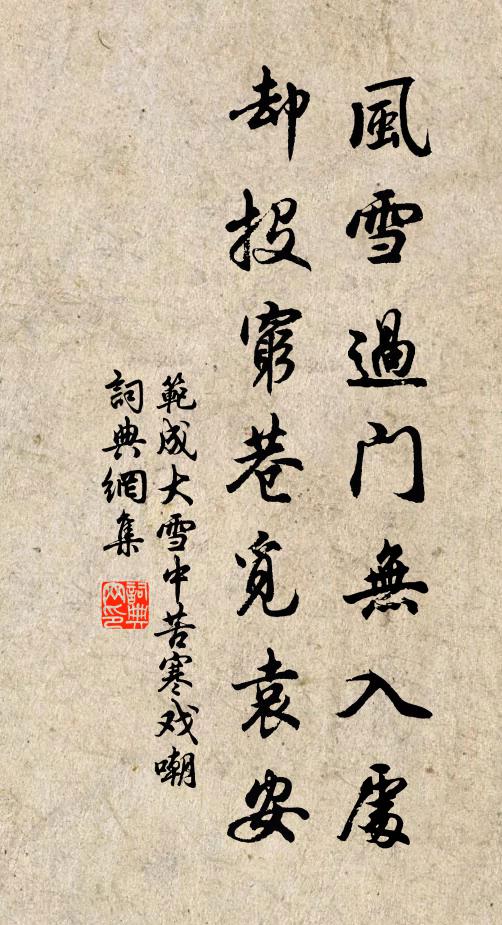 風雪過门無入處
却投窮巷覓袁安
範成大雪中苦寒戏嘲
詞典網集
詞典网印